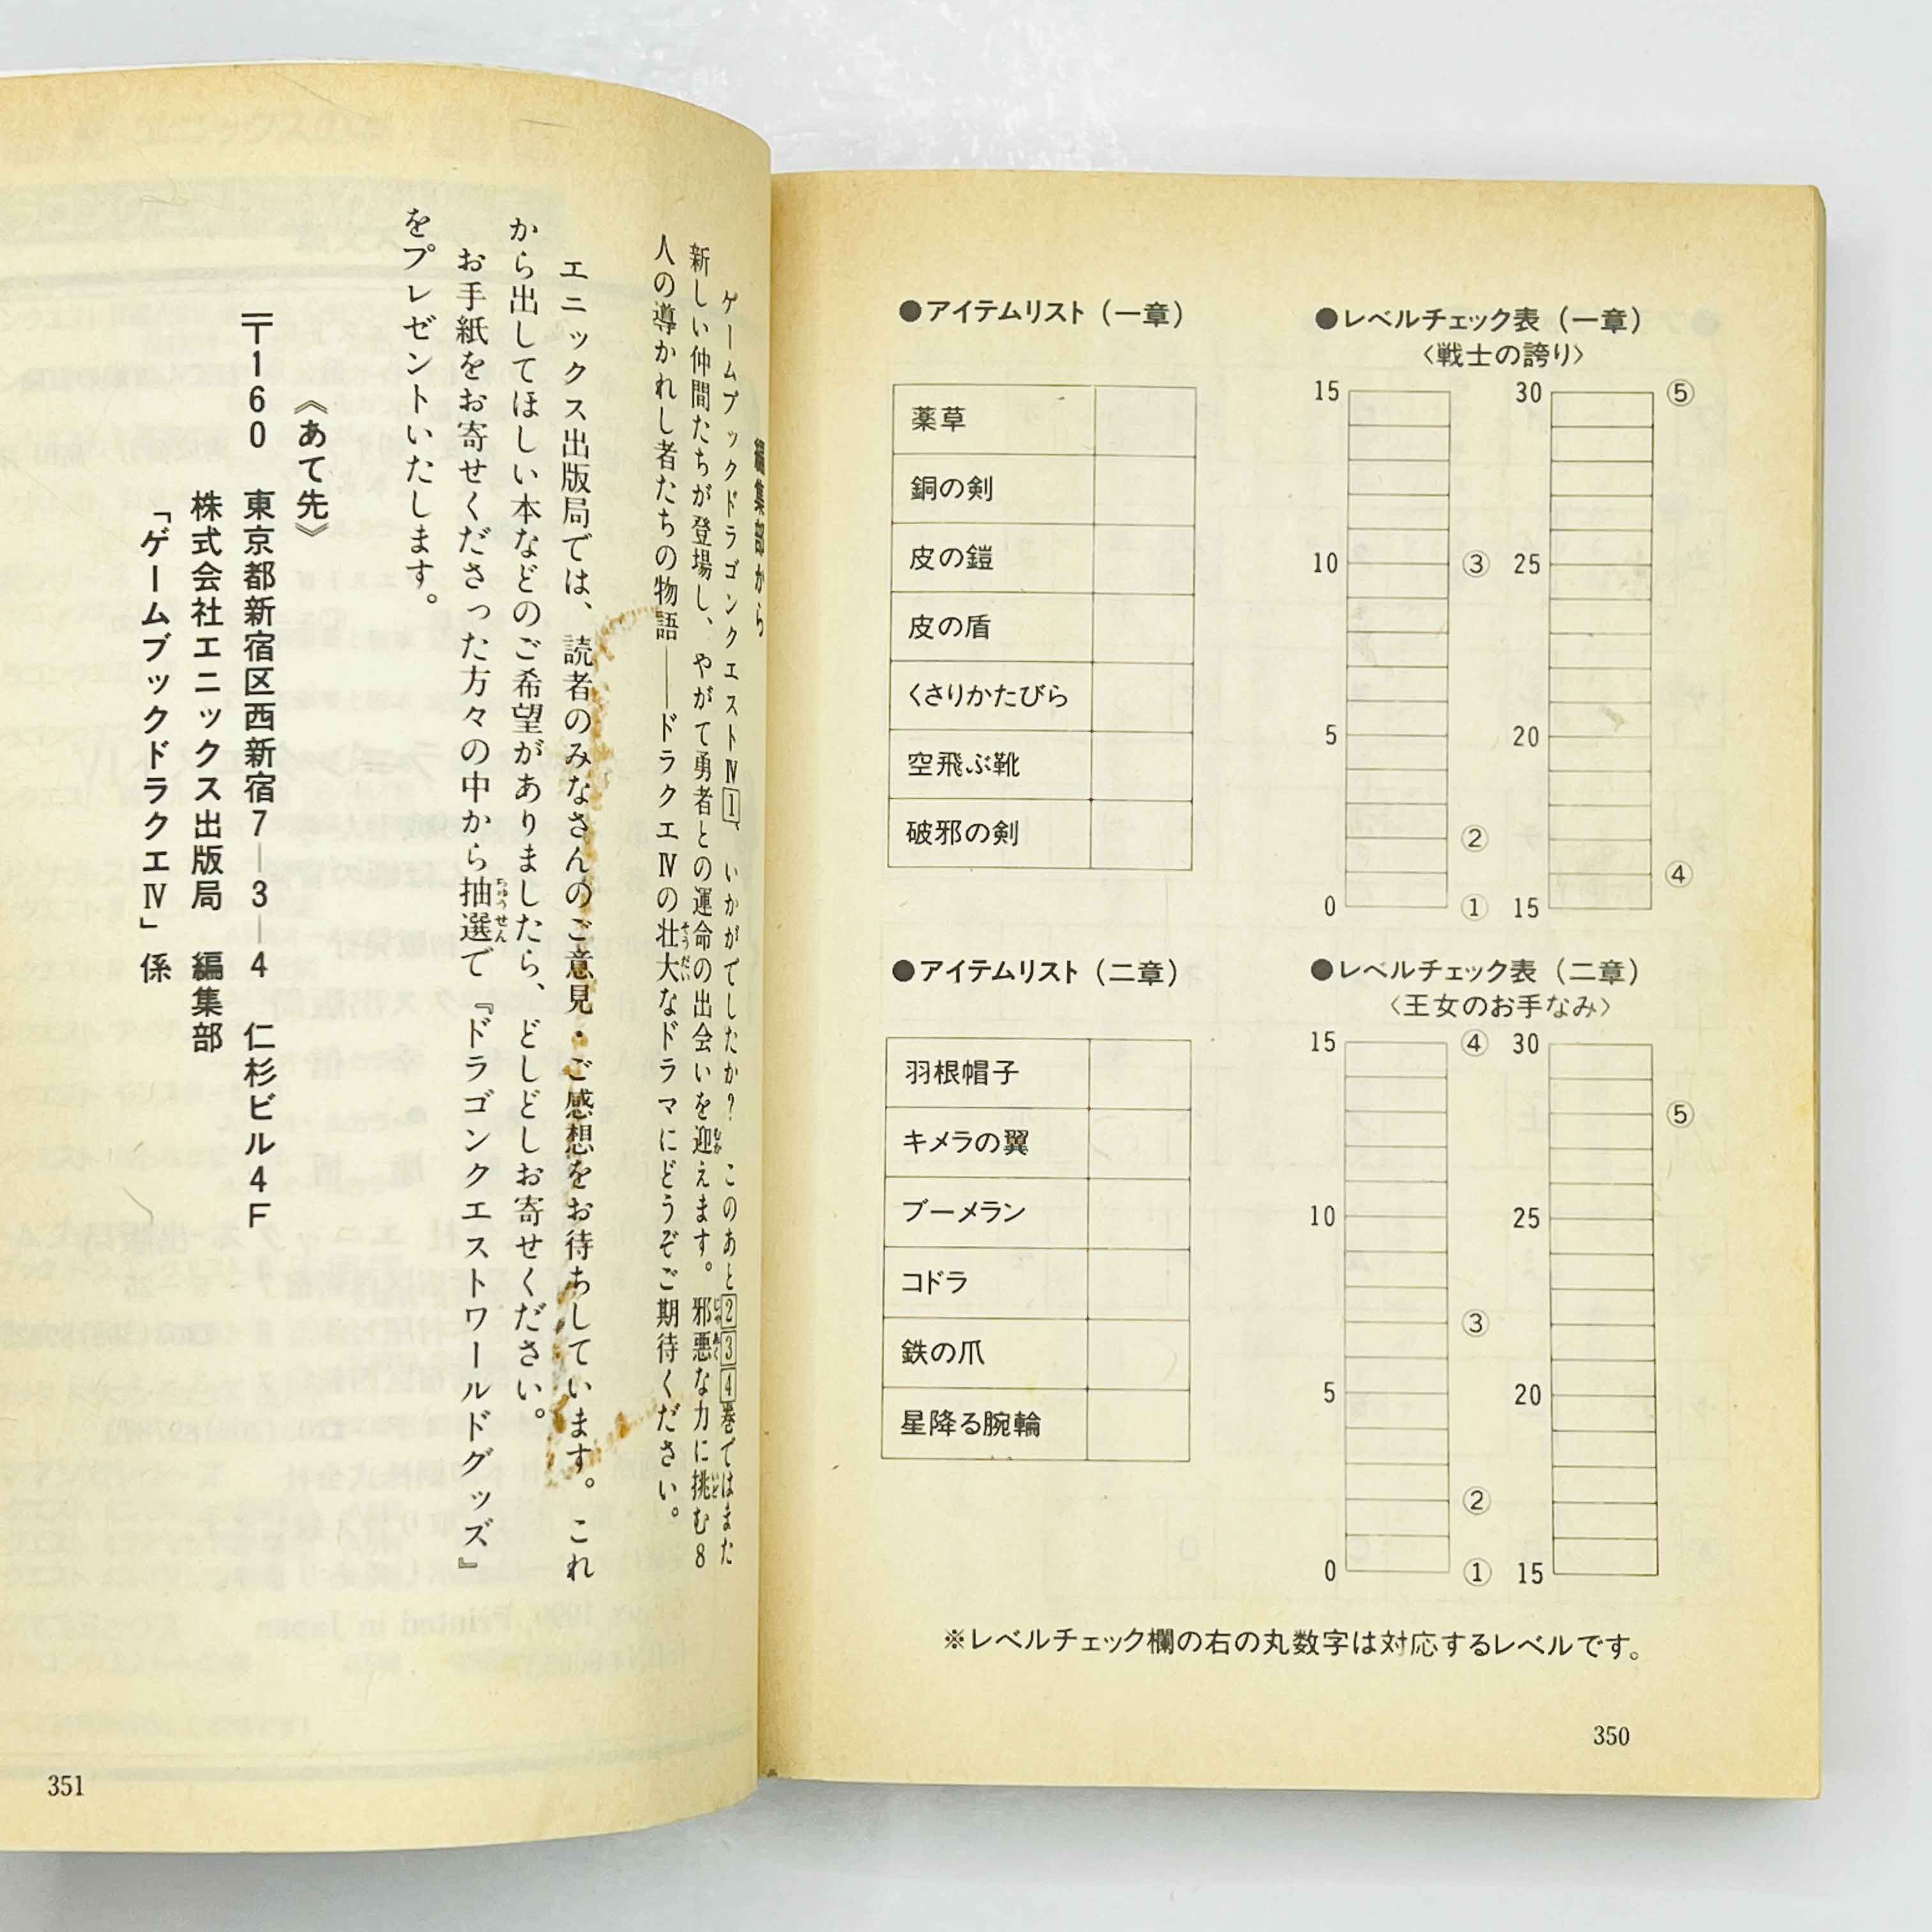 ●アイテムリスト（一章）
薬草
銅の剣
皮の鎧
皮の盾
くさりかたびら
空飛ぶ靴
破邪の剣
●レベルチェック表（一章）
〈戦士の誇り〉
15
10
5
0
③
②
①
30
25
20
15
⑤
④
●アイテムリスト（二章）
羽根帽子
キメラの翼
ブーメラン
コドラ
鉄の爪
星降る腕輪
●レベルチェック表（二章）
〈王女のお手なみ〉
15
10
5
0
④
③
②
①
30
25
20
15
⑤
※レベルチェック欄の右の丸数字は対応するレベルです。
350
編集部から
ゲームブックドラゴンクエストⅣ1、いかがでしたか？ このあと234巻ではまた
新しい仲間たちが登場し、やがて勇者との運命の出会いを迎えます。邪悪な力に挑む8
人の導かれし者たちの物語──ドラクエⅣの壮大なドラマにどうぞご期待ください。
エニックス出版局では、読者のみなさんのご意見・ご感想をお待ちしています。これ
から出してほしい本などのご希望がありましたら、どしどしお寄せください。
お手紙をお寄せくださった方々の中から抽選で『ドラゴンクエストワールドグッズ』
をプレゼントいたします。
《あて先》
〒160 東京都新宿区西新宿7─3─4 仁杉ビル4F
株式会社エニックス出版局 編集部
「ゲームブックドラクエⅣ」係
351